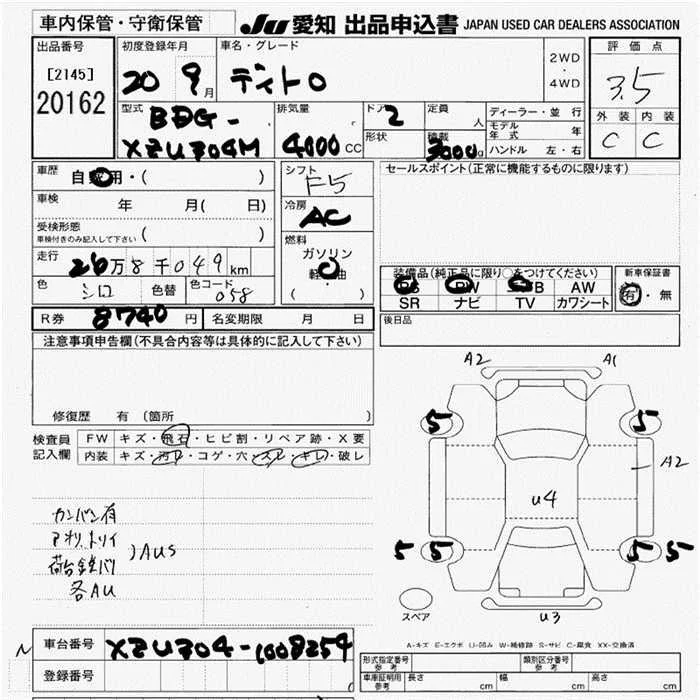 車内保管・守衛保管
JU 愛知 出品申込書 JAPAN USED CAR DEALERS ASSOCIATION
出品番号
[2145]
20162
初度登録年月
20 9月
車名・グレード
2WD
・
4WD
評価点
3.5
外装 内装
C C
型式
BDG-
XZU304M
排気量
4000 CC
ドア 2
形状
定員 人
積載 3000
ディーラー・並行
モデル年式 年
ハンドル 左・右
車歴
自家用・( )
車検 年 月( 日)
受検形態
車検付きのみ記入して下さい ( )
走行 26万8千049km
色 シロ 色替 色コード 058
シフト
F5
冷房
AC
燃料
ガソリン
軽油
( )
セールスポイント(正常に機能するものに限ります)
装備品(純正品に限り○をつけてください)
PS PW AW
SR ナビ TV カワシート
新車保証書
有・無
R券 8740円 名変期限 月 日
後日品
注意事項申告欄(不具合内容等は具体的に記入して下さい)
修復歴 有 (箇所 )
検査員
記入欄
FW キズ・飛石・ヒビ割・リペア跡・X要
内装 キズ・汚レ・コゲ・穴・スレ・キレ・破レ
カンバン有
アオリ、トリイ
荷台鉄バリ
)AUS
各AU
A2 A1
5 5
A2
U4
5 5 5 5
スペア
U3
A-キズ E-エクボ U-凹み W-補修跡 S-サビ C-腐食 XX-交換済
N
車台番号 XZU304-1008254
登録番号
形式指定番号
参考
類別区分番号
参考
車庫証明用
参考
長さ cm 幅 cm 高さ cm